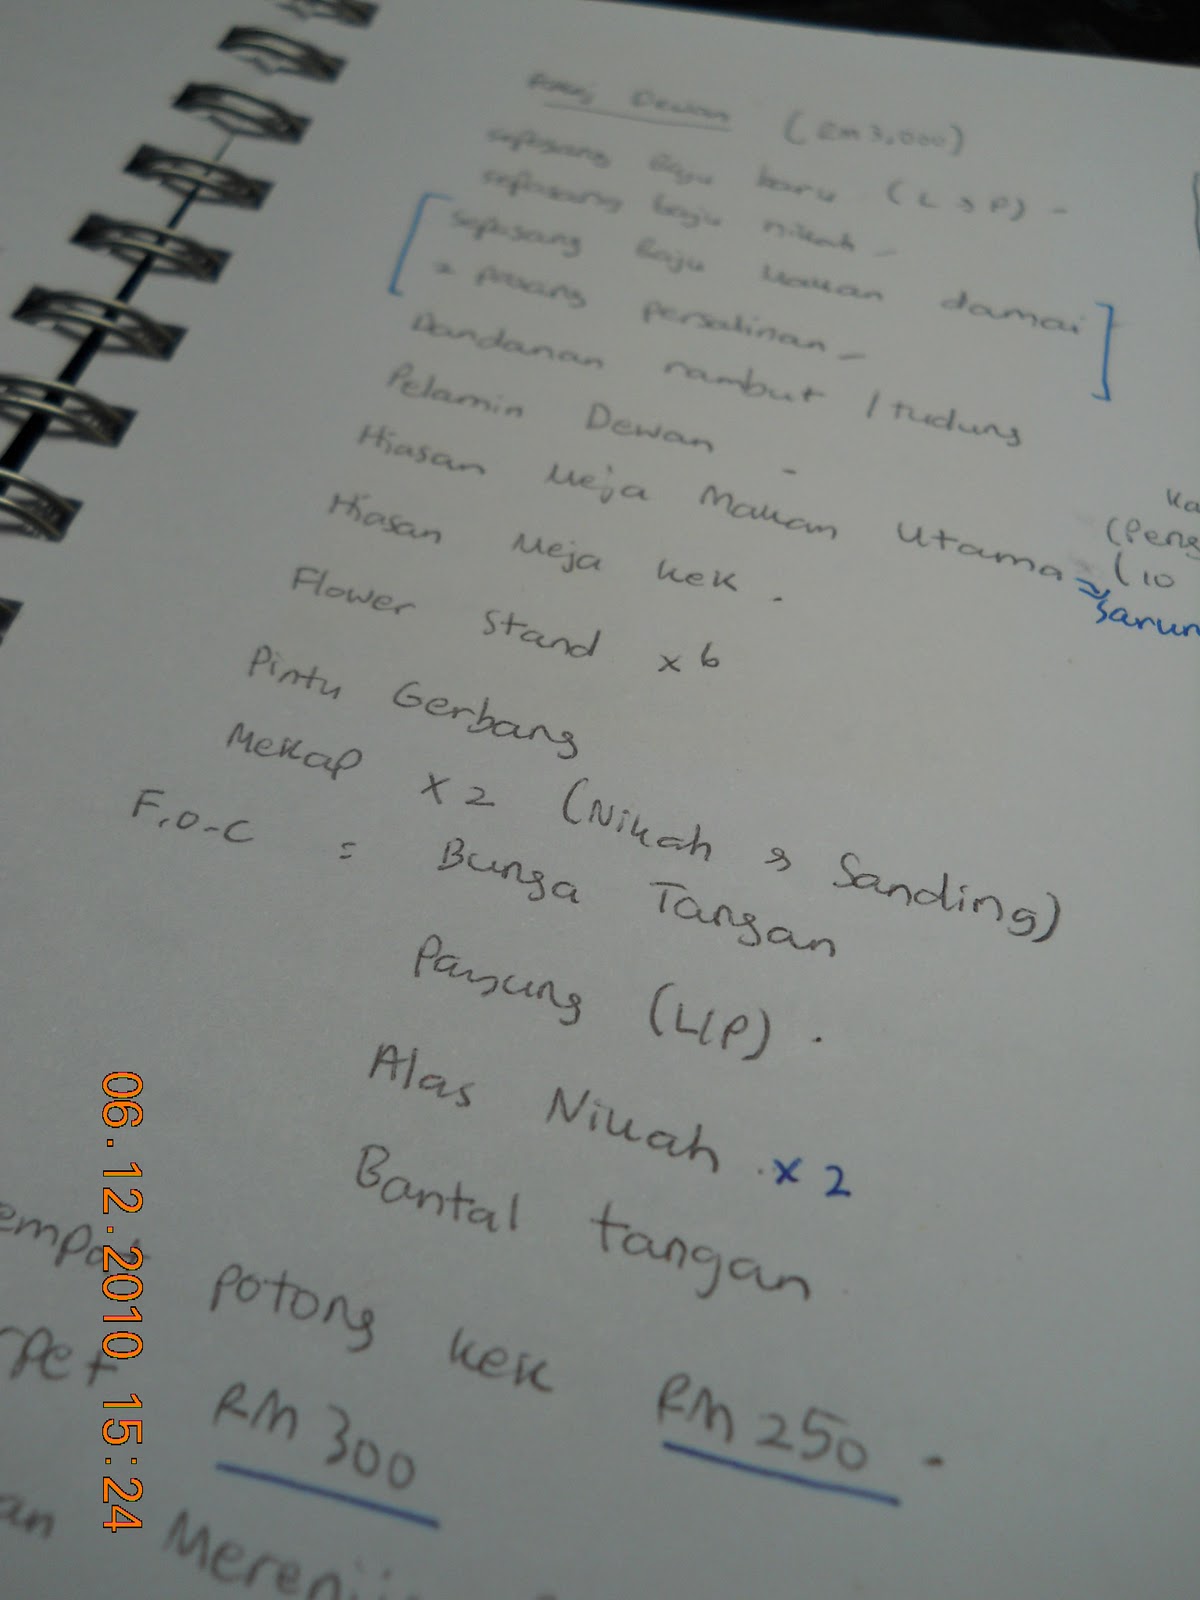 Dewan (RM3,000)
sepasang Baju baru (L & P) -
sepasang baju nikah -
sepasang Baju makan damai
2 pasang persalinan -
Dandanan rambut / tudung
Pelamin Dewan -
Hiasan Meja Makan Utama
Hiasan Meja kek .
Flower Stand x 6
Pintu Gerbang
Mekap x 2 (Nikah & Sanding)
F.O.C : Bunga Tangan
Payung (L/P) .
Alas Nikah . x 2
Bantal tangan
potong kek RM 250 .
RM 300
(10
06.12.2010 15:24